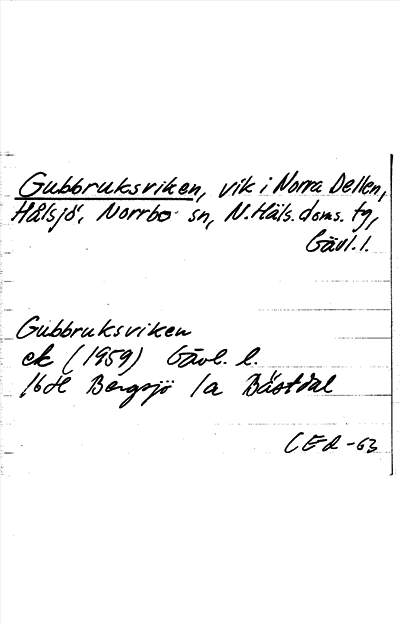 Gubbruksviken, vik i Norra Dellen,
Hålsjö, Norrbo sn, N.Häls. doms. tg,
Gävl. l.
Gubbruksviken
ek (1959) Gävl. l.
16H Bergsjö 1a Bästdal
CER -63